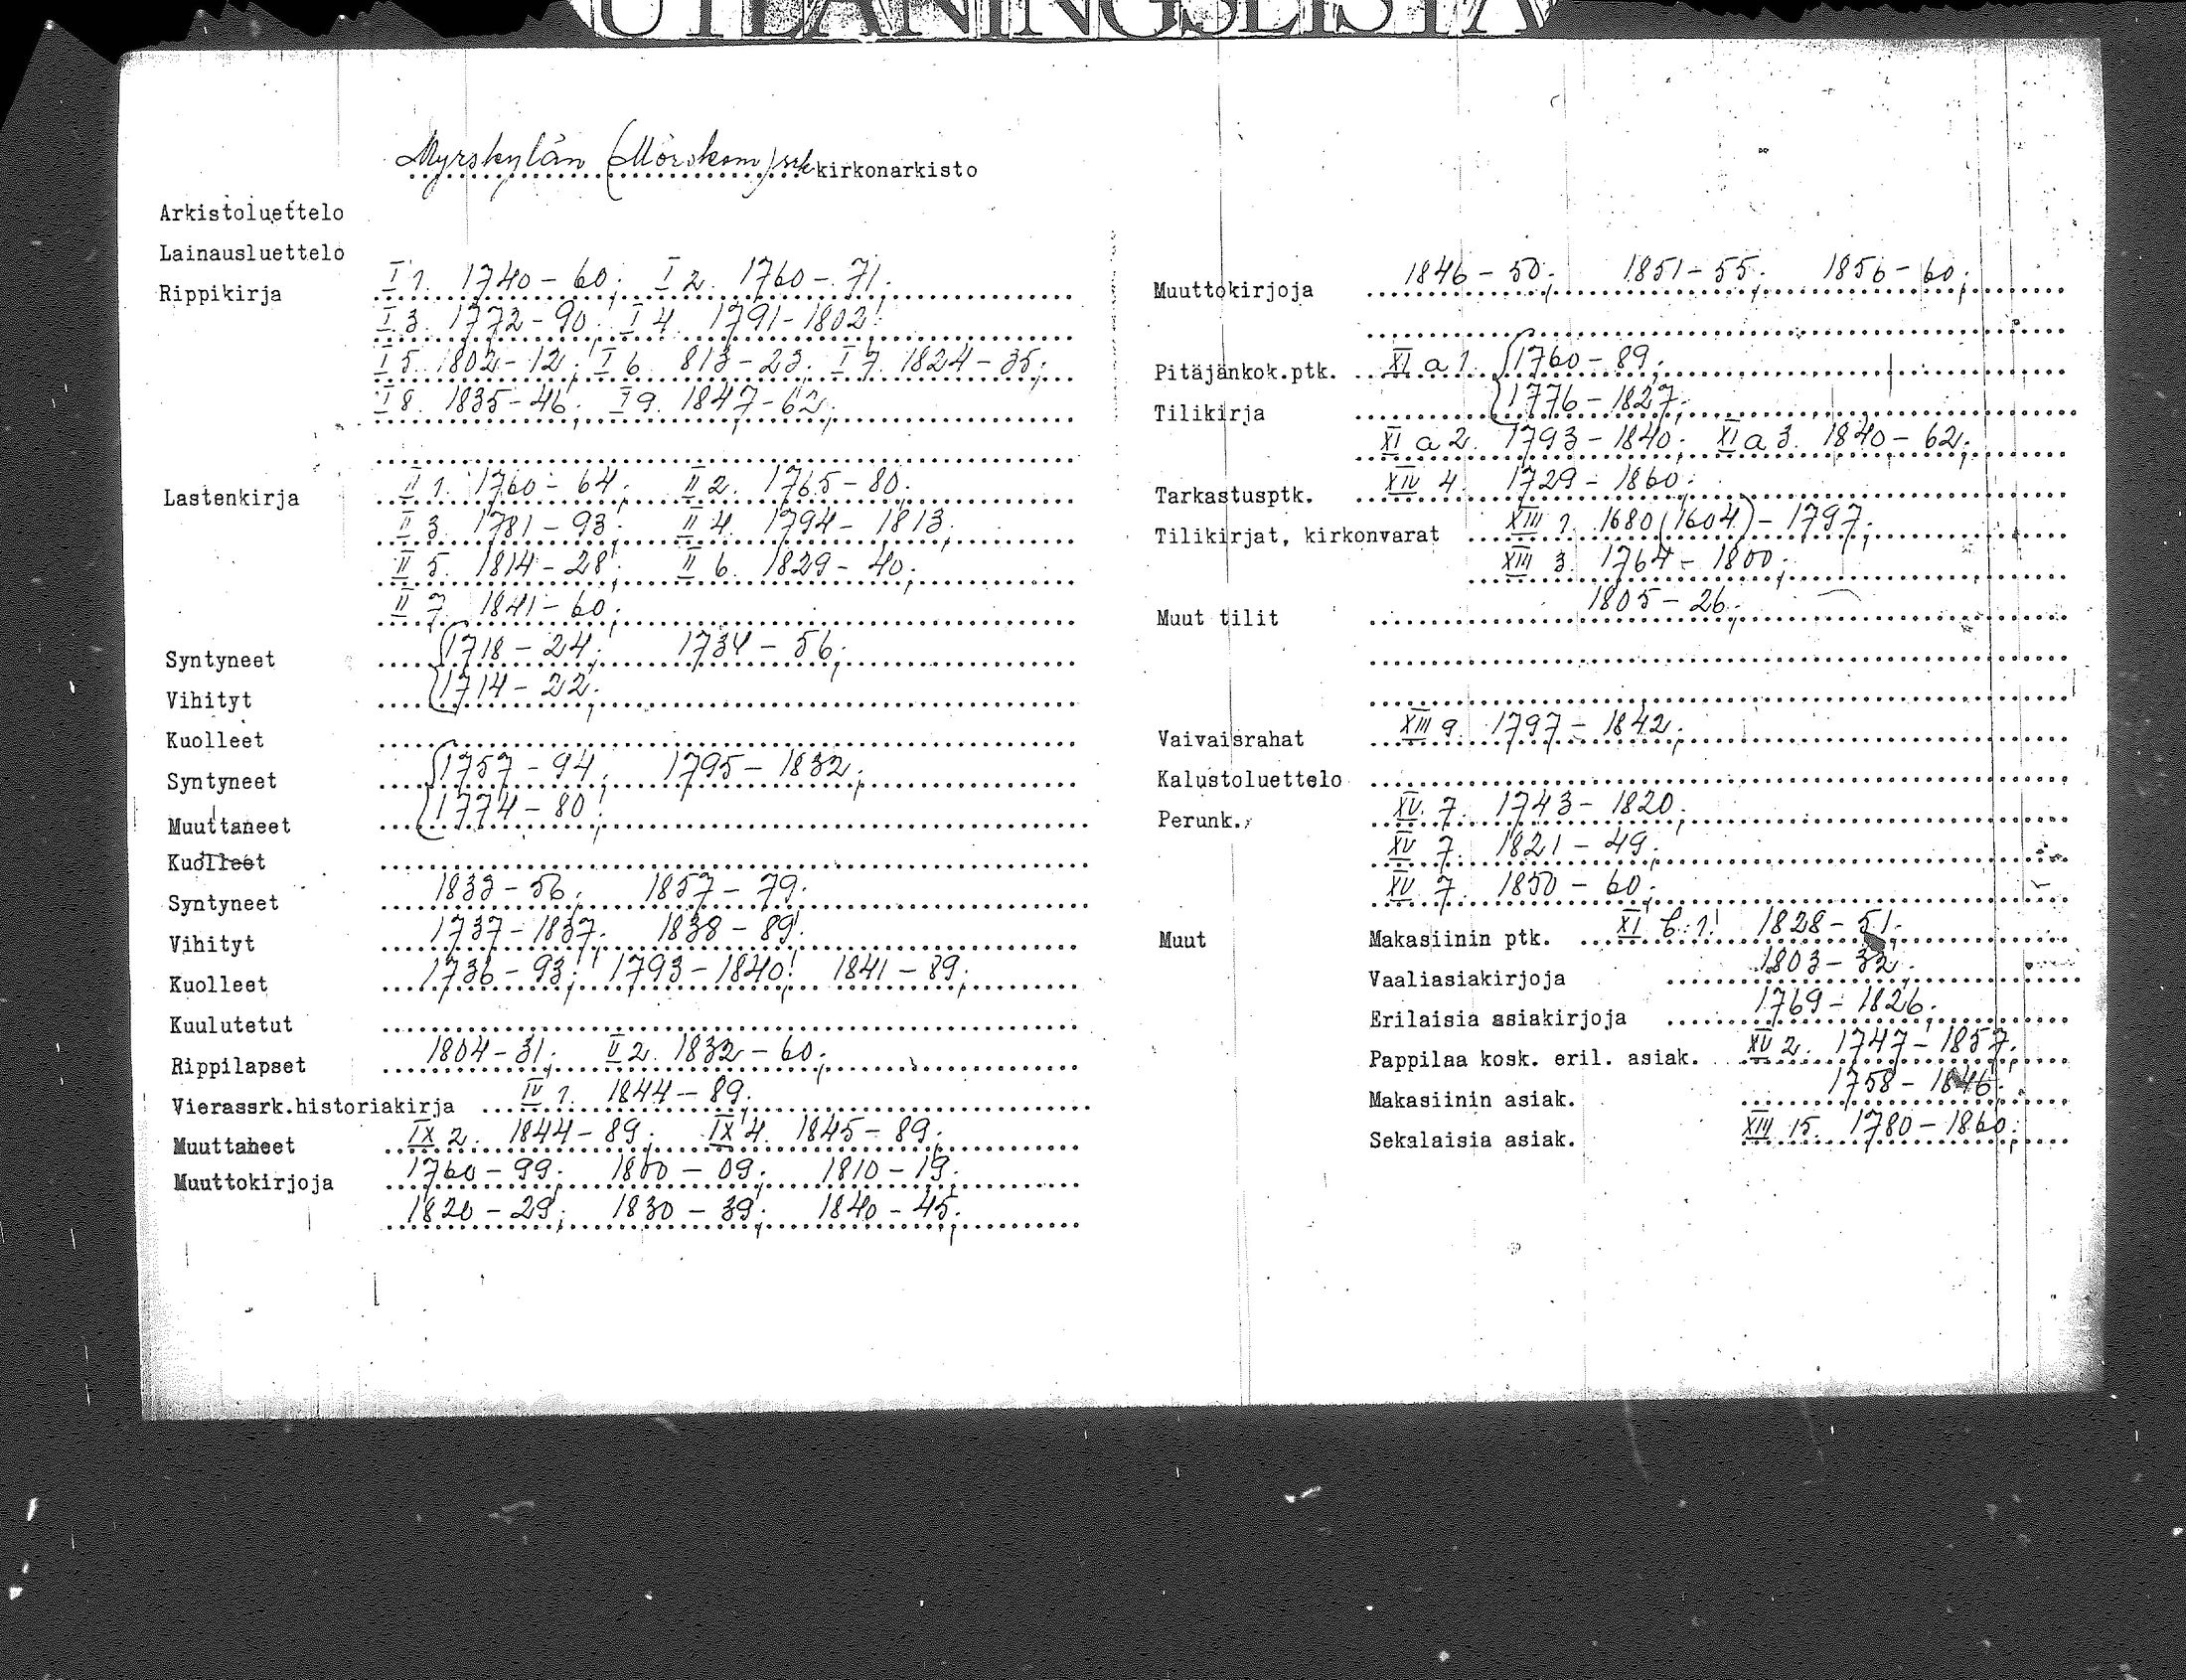 UTLÅNINGSLISTA
Myrskylän (Mörskom) srk kirkonarkisto
Arkistoluettelo
Lainausluettelo
Rippikirja I 1. 1740-60; I 2. 1760-71;
I 3. 1772-90; I 4. 1791-1802;
I 5. 1802-12; I 6. 813-23; I 7. 1824-35;
I 8. 1835-46; I 9. 1847-62;
Lastenkirja II 1. 1760-64; II 2. 1765-80;
II 3. 1781-93; II 4. 1794-1813;
II 5. 1814-28; II 6. 1829-40;
II 7. 1841-60;
Syntyneet 1718-24; 1734-56;
Vihityt 1714-22;
Kuolleet
Syntyneet 1757-94; 1795-1832;
Muuttaneet 1774-80;
Kuolleet
Syntyneet 1833-56; 1857-79;
Vihityt 1737-1837; 1838-89;
Kuolleet 1736-93; 1793-1840; 1841-89;
Kuulutetut
Rippilapset 1804-31; II 2. 1832-60;
Vierassrk.historiakirja IV 1. 1844-89;
Muuttaneet IX 2. 1844-89; IX 4. 1845-89;
Muuttokirjoja 1760-99; 1800-09; 1810-19;
1820-29; 1830-39; 1840-45;
Muuttokirjoja 1846-50; 1851-55; 1856-60;
Pitäjänkok.ptk. XI a 1. 1760-89;
Tilikirja 1776-1827;
XI a 2. 1793-1840; XI a 3. 1840-62;
Tarkastusptk. XIV 4. 1729-1860;
Tilikirjat, kirkonvarat XIII 1. 1680 (1604)-1797;
XIII 3. 1764-1800;
Muut tilit 1805-26;
Vaivaisrahat XIII 9. 1797-1842;
Kalustoluettelo
Perunk. XV 7. 1743-1820;
XV 7. 1821-49;
XV 7. 1850-60;
Muut Makasiinin ptk. XI b: 1. 1828-51;
Vaaliasiakirjoja 1803-32;
Erilaisia asiakirjoja 1769-1826;
Pappilaa kosk. eril. asiak. XV 2. 1747-1857;
Makasiinin asiak. 1758-1846;
Sekalaisia asiak. XIII 15. 1780-1860;